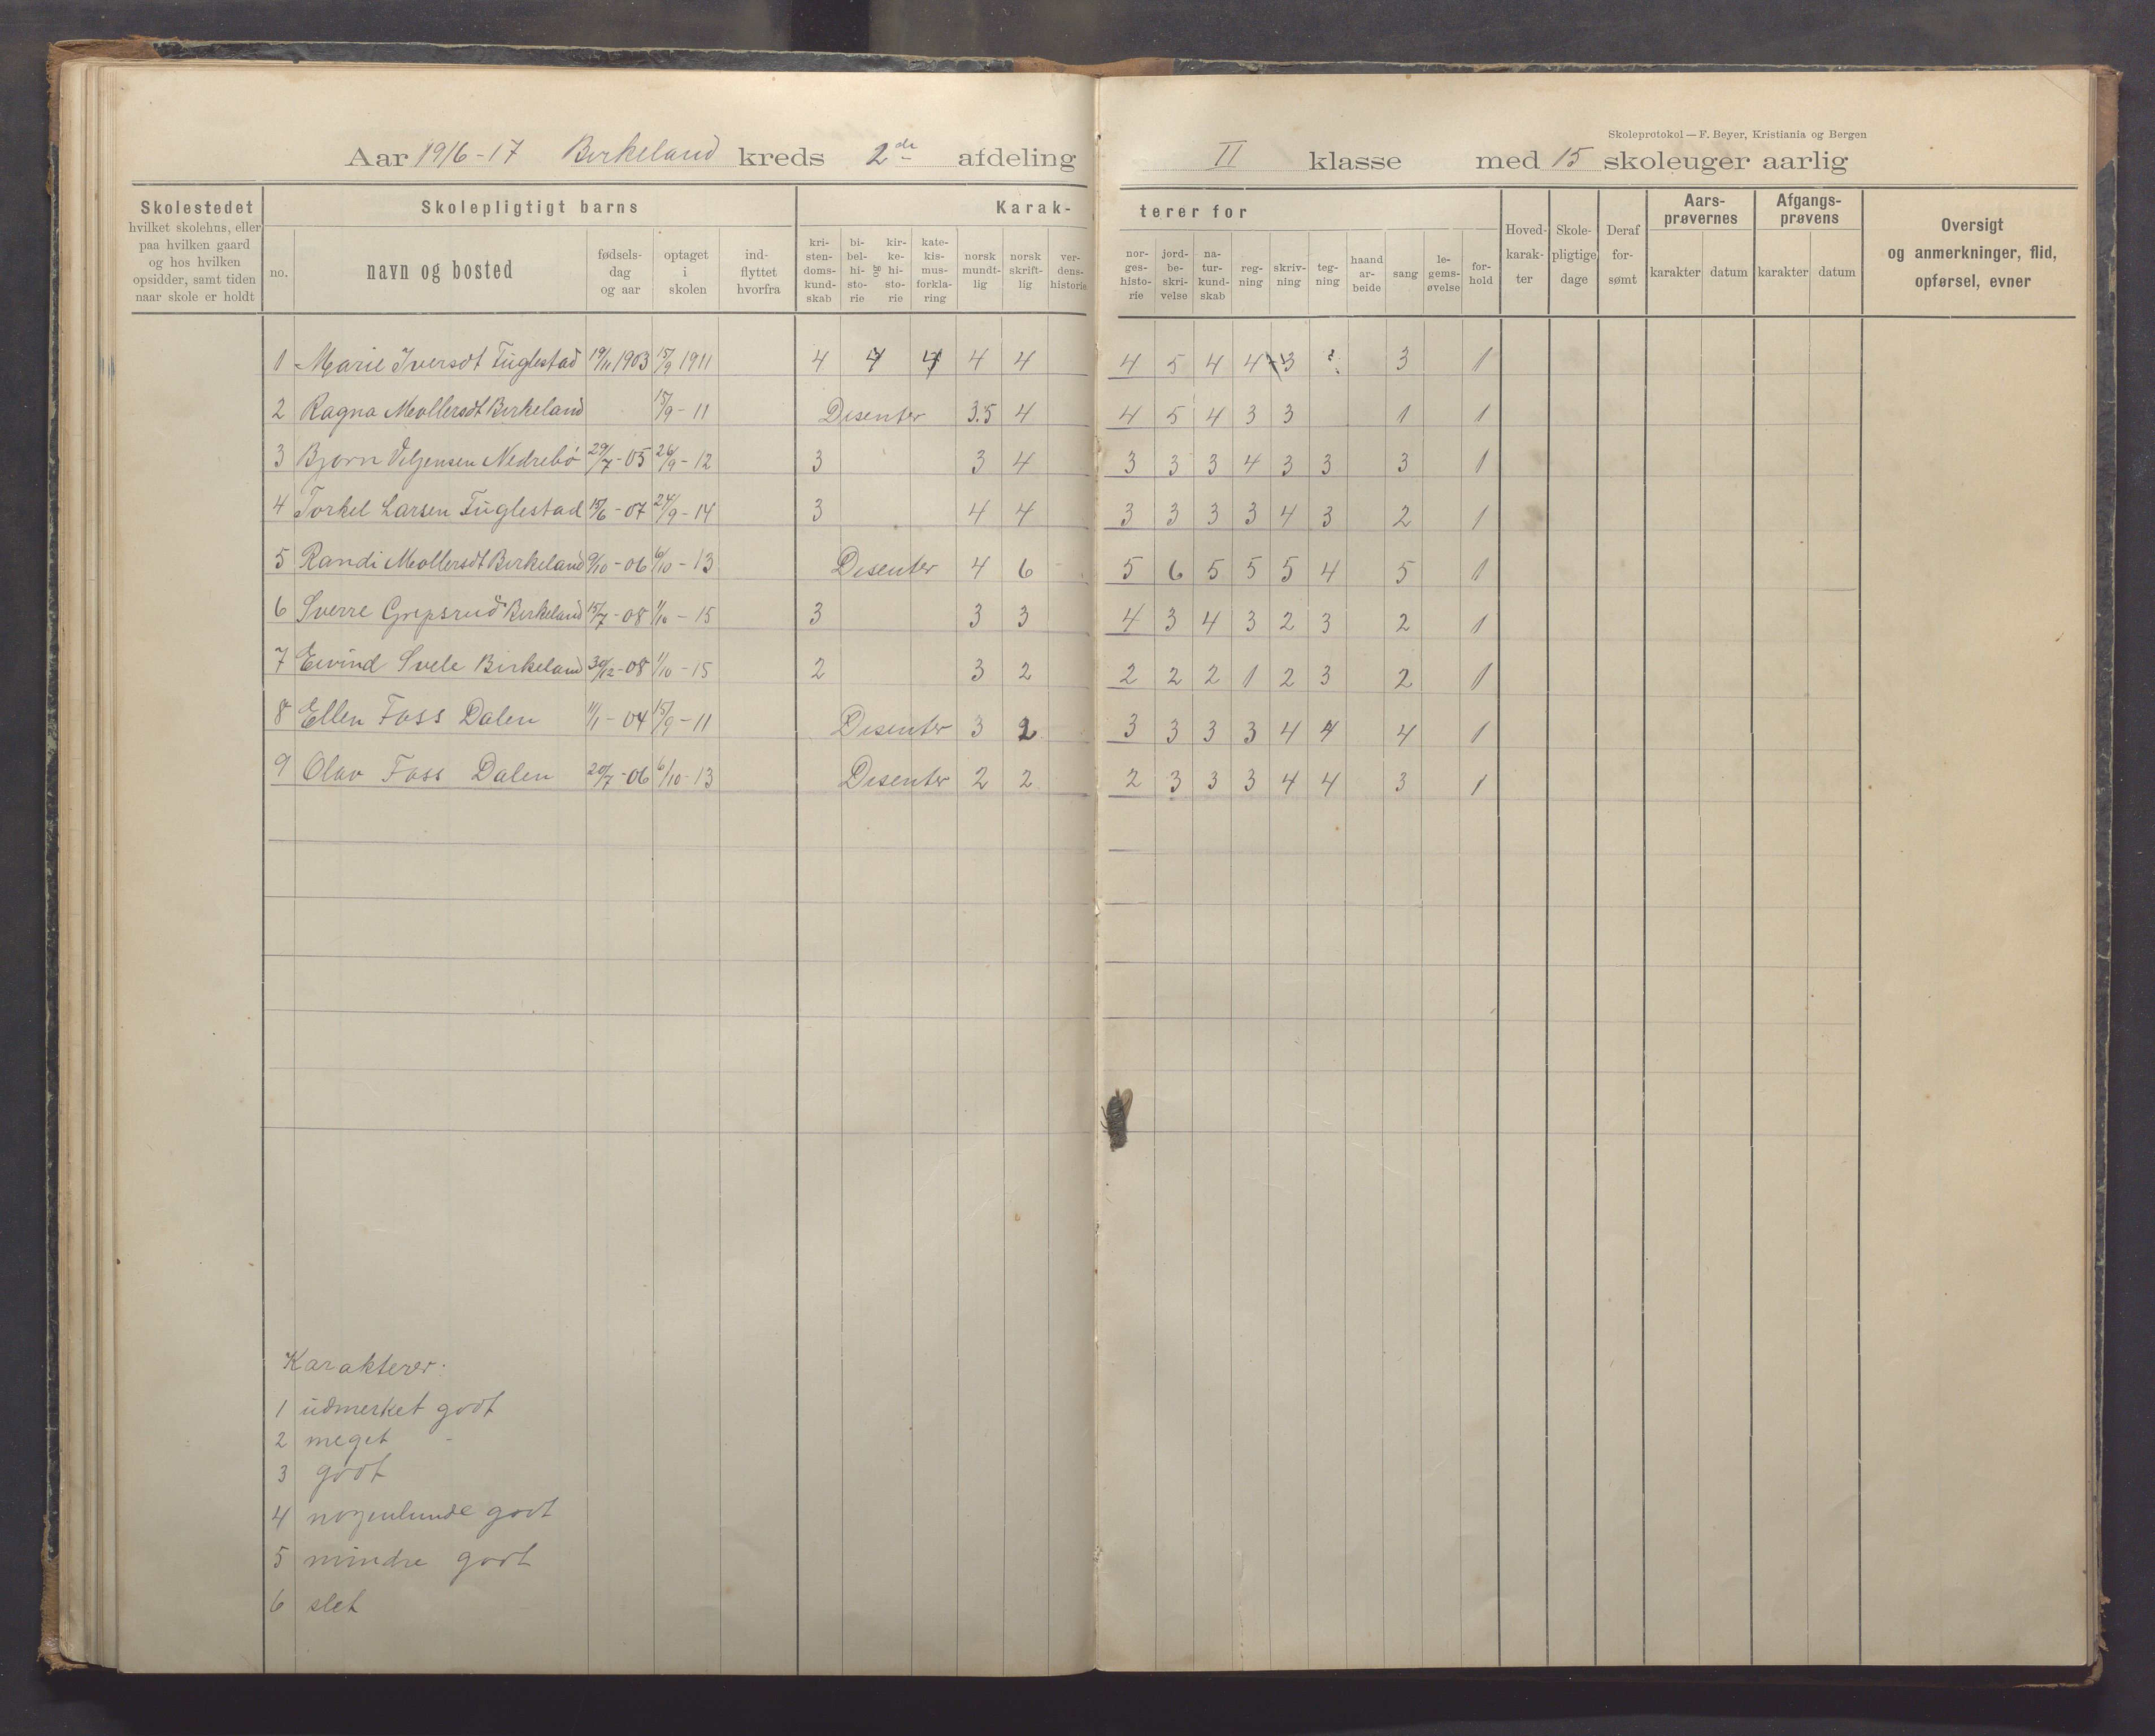 Skoleprotokol — F. Beyer, Kristiania og Bergen
Aar 1916-17 Birkeland kreds 2de afdeling II klasse med 15 skoleuger aarlig
Skolestedet
hvilket skolehus, eller
paa hvilken gaard
og hos hvilken
opsidder, samt tiden
naar skole er holdt
Skolepligtigt barns
no.
navn og bosted
fødsels-
dag
og aar
optaget
i
skolen
ind-
flyttet
hvorfra
Karak-
terer for
kri-
sten-
doms-
kund-
skab
bi-
bel-
hi-
sto-
rie
og
kir-
ke-
hi-
sto-
rie
kate-
kis-
mus-
forkla-
ring
norsk
mundt-
lig
norsk
skrift-
lig
ver-
dens-
historie
nor-
ges-
histo-
rie
jord-
be-
skri-
velse
na-
tur-
kund-
skab
reg-
ning
skriv-
ning
teg-
ning
haand
ar-
beide
sang
le-
gems-
øvelse
for-
hold
Hoved-
karak-
ter
Skole-
pligtige
dage
Deraf
for-
sømt
Aars-
prøvernes
karakter datum
Afgangs-
prøvens
karakter datum
Oversigt
og anmerkninger, flid,
opførsel, evner
1 Marie Iversdt Fuglestad 19/11 1903 15/9 1911 4 4 4 4 4 4 5 4 4 3 ? 3 1
2 Ragna Mollersdt Birkeland 15/9 - 11 Disenter 3.5 4 4 5 4 3 3 1 1
3 Bjorn Nedrebø 29/7 - 05 26/9 - 12 3 3 4 3 3 3 4 3 3 3 1
4 Torkel Larsen Fuglestad 15/6 - 07 24/9 - 14 3 4 4 3 3 3 3 4 3 2 1
5 Randi Mollersdt Birkeland 9/10 - 06 6/10 - 13 Disenter 4 6 5 6 5 5 5 4 5 1
6 Sverre Grepsrud Birkeland 15/7 - 08 1/10 - 15 3 3 3 4 3 4 3 2 3 2 1
7 Eivind Svele Birkeland 30/12 - 08 1/10 - 15 2 3 2 2 2 2 1 2 3 2 1
8 Ellen Foss Dalen 11/1 - 04 15/9 - 11 Disenter 3 2 3 3 3 3 4 4 4 1
9 Olav Foss Dalen 20/7 - 06 6/10 - 13 Disenter 2 2 2 3 3 3 4 4 3 1
Karakterer:
1 udmerket godt
2 meget -
3 godt
4 nogenlunde godt
5 mindre godt
6 slet